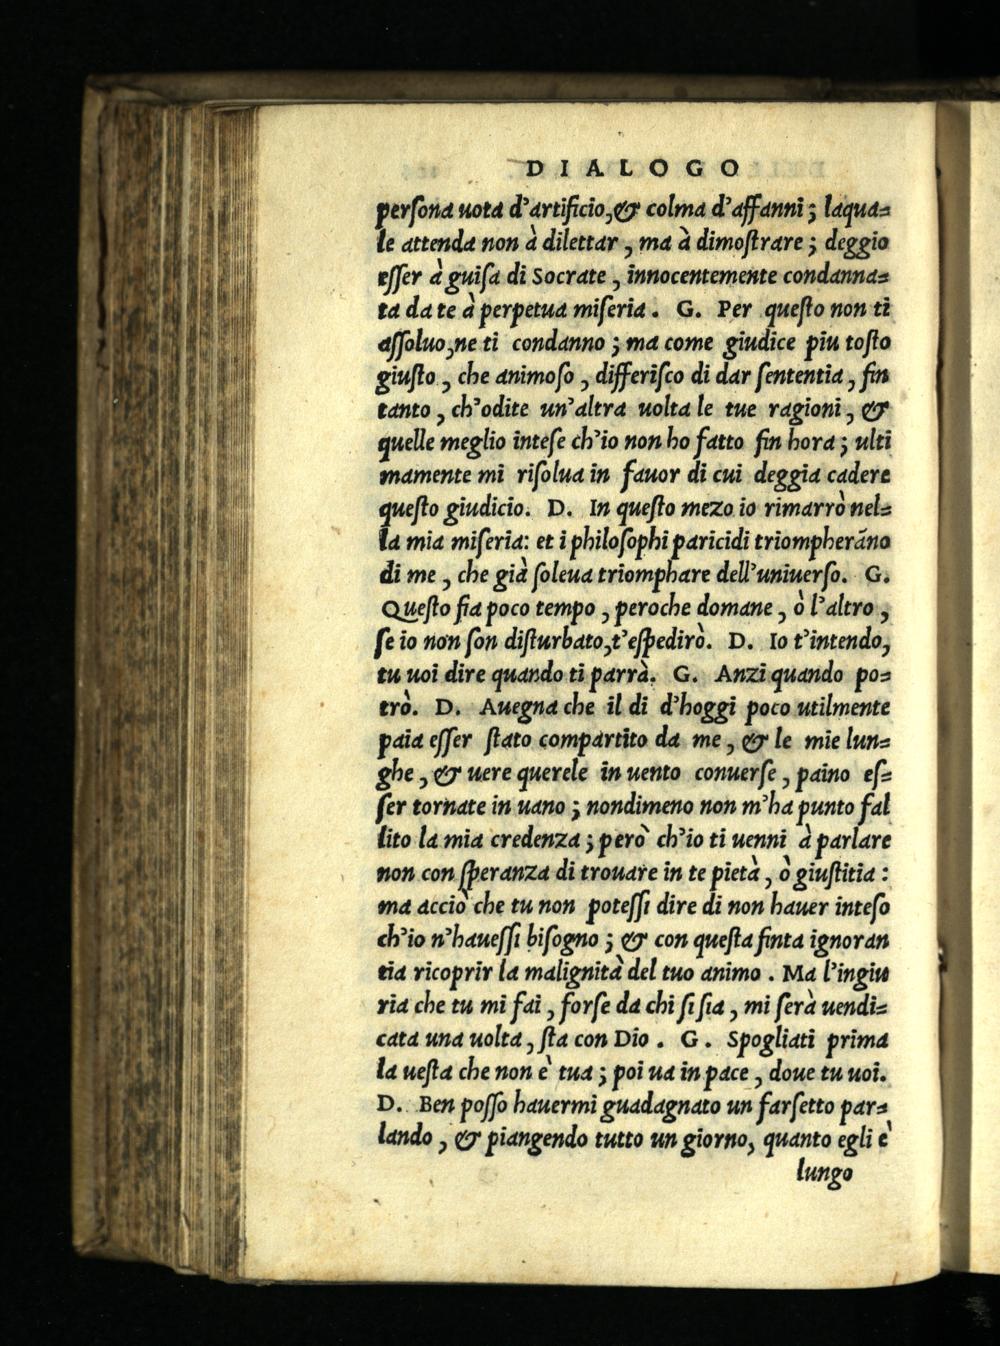 DIALOGO
perſona uota d'artificio,& colma d'affanni; laqua=
le attenda non à dilettar, ma à dimoſtrare; deggio
eſſer à guiſa di Socrate, innocentemente condanna=
ta da te à perpetua miſeria. G. Per queſto non ti
aſſoluo,ne ti condanno; ma come giudice piu toſto
giuſto, che animoſo, differiſco di dar ſententia, fin
tanto, ch'odite un'altra uolta le tue ragioni, &
quelle meglio inteſe ch'io non ho fatto fin hora; ulti
mamente mi riſolua in fauor di cui deggia cadere
queſto giudicio. D. In queſto mezo io rimarrò nel=
la mia miſeria: et i philoſophi paricidi triompherãno
di me, che già ſoleua triomphare dell'uniuerſo. G.
Queſto fia poco tempo, peroche domane, ò l'altro,
ſe io non ſon diſturbato,t'eſpedirò. D. Io t'intendo,
tu uoi dire quando ti parrà. G. Anzi quando po=
trò. D. Auegna che il di d'hoggi poco utilmente
paia eſſer ſtato compartito da me, & le mie lun=
ghe, & uere querele in uento conuerſe, paino eſ=
ſer tornate in uano; nondimeno non m'ha punto fal
lito la mia credenza; però ch'io ti uenni à parlare
non con ſperanza di trouare in te pietà, ò giuſtitia:
ma acciò che tu non poteſſi dire di non hauer inteſo
ch'io n'haueſſi biſogno; & con queſta finta ignoran
tia ricoprir la malignità del tuo animo. Ma l'ingiu
ria che tu mi fai, forſe da chi ſi ſia, mi ſerà uendi=
cata una uolta, ſta con Dio. G. Spogliati prima
la ueſta che non è tua; poi ua in pace, doue tu uoi.
D. Ben poſſo hauermi guadagnato un farſetto par=
lando, & piangendo tutto un giorno, quanto egli è
lungo